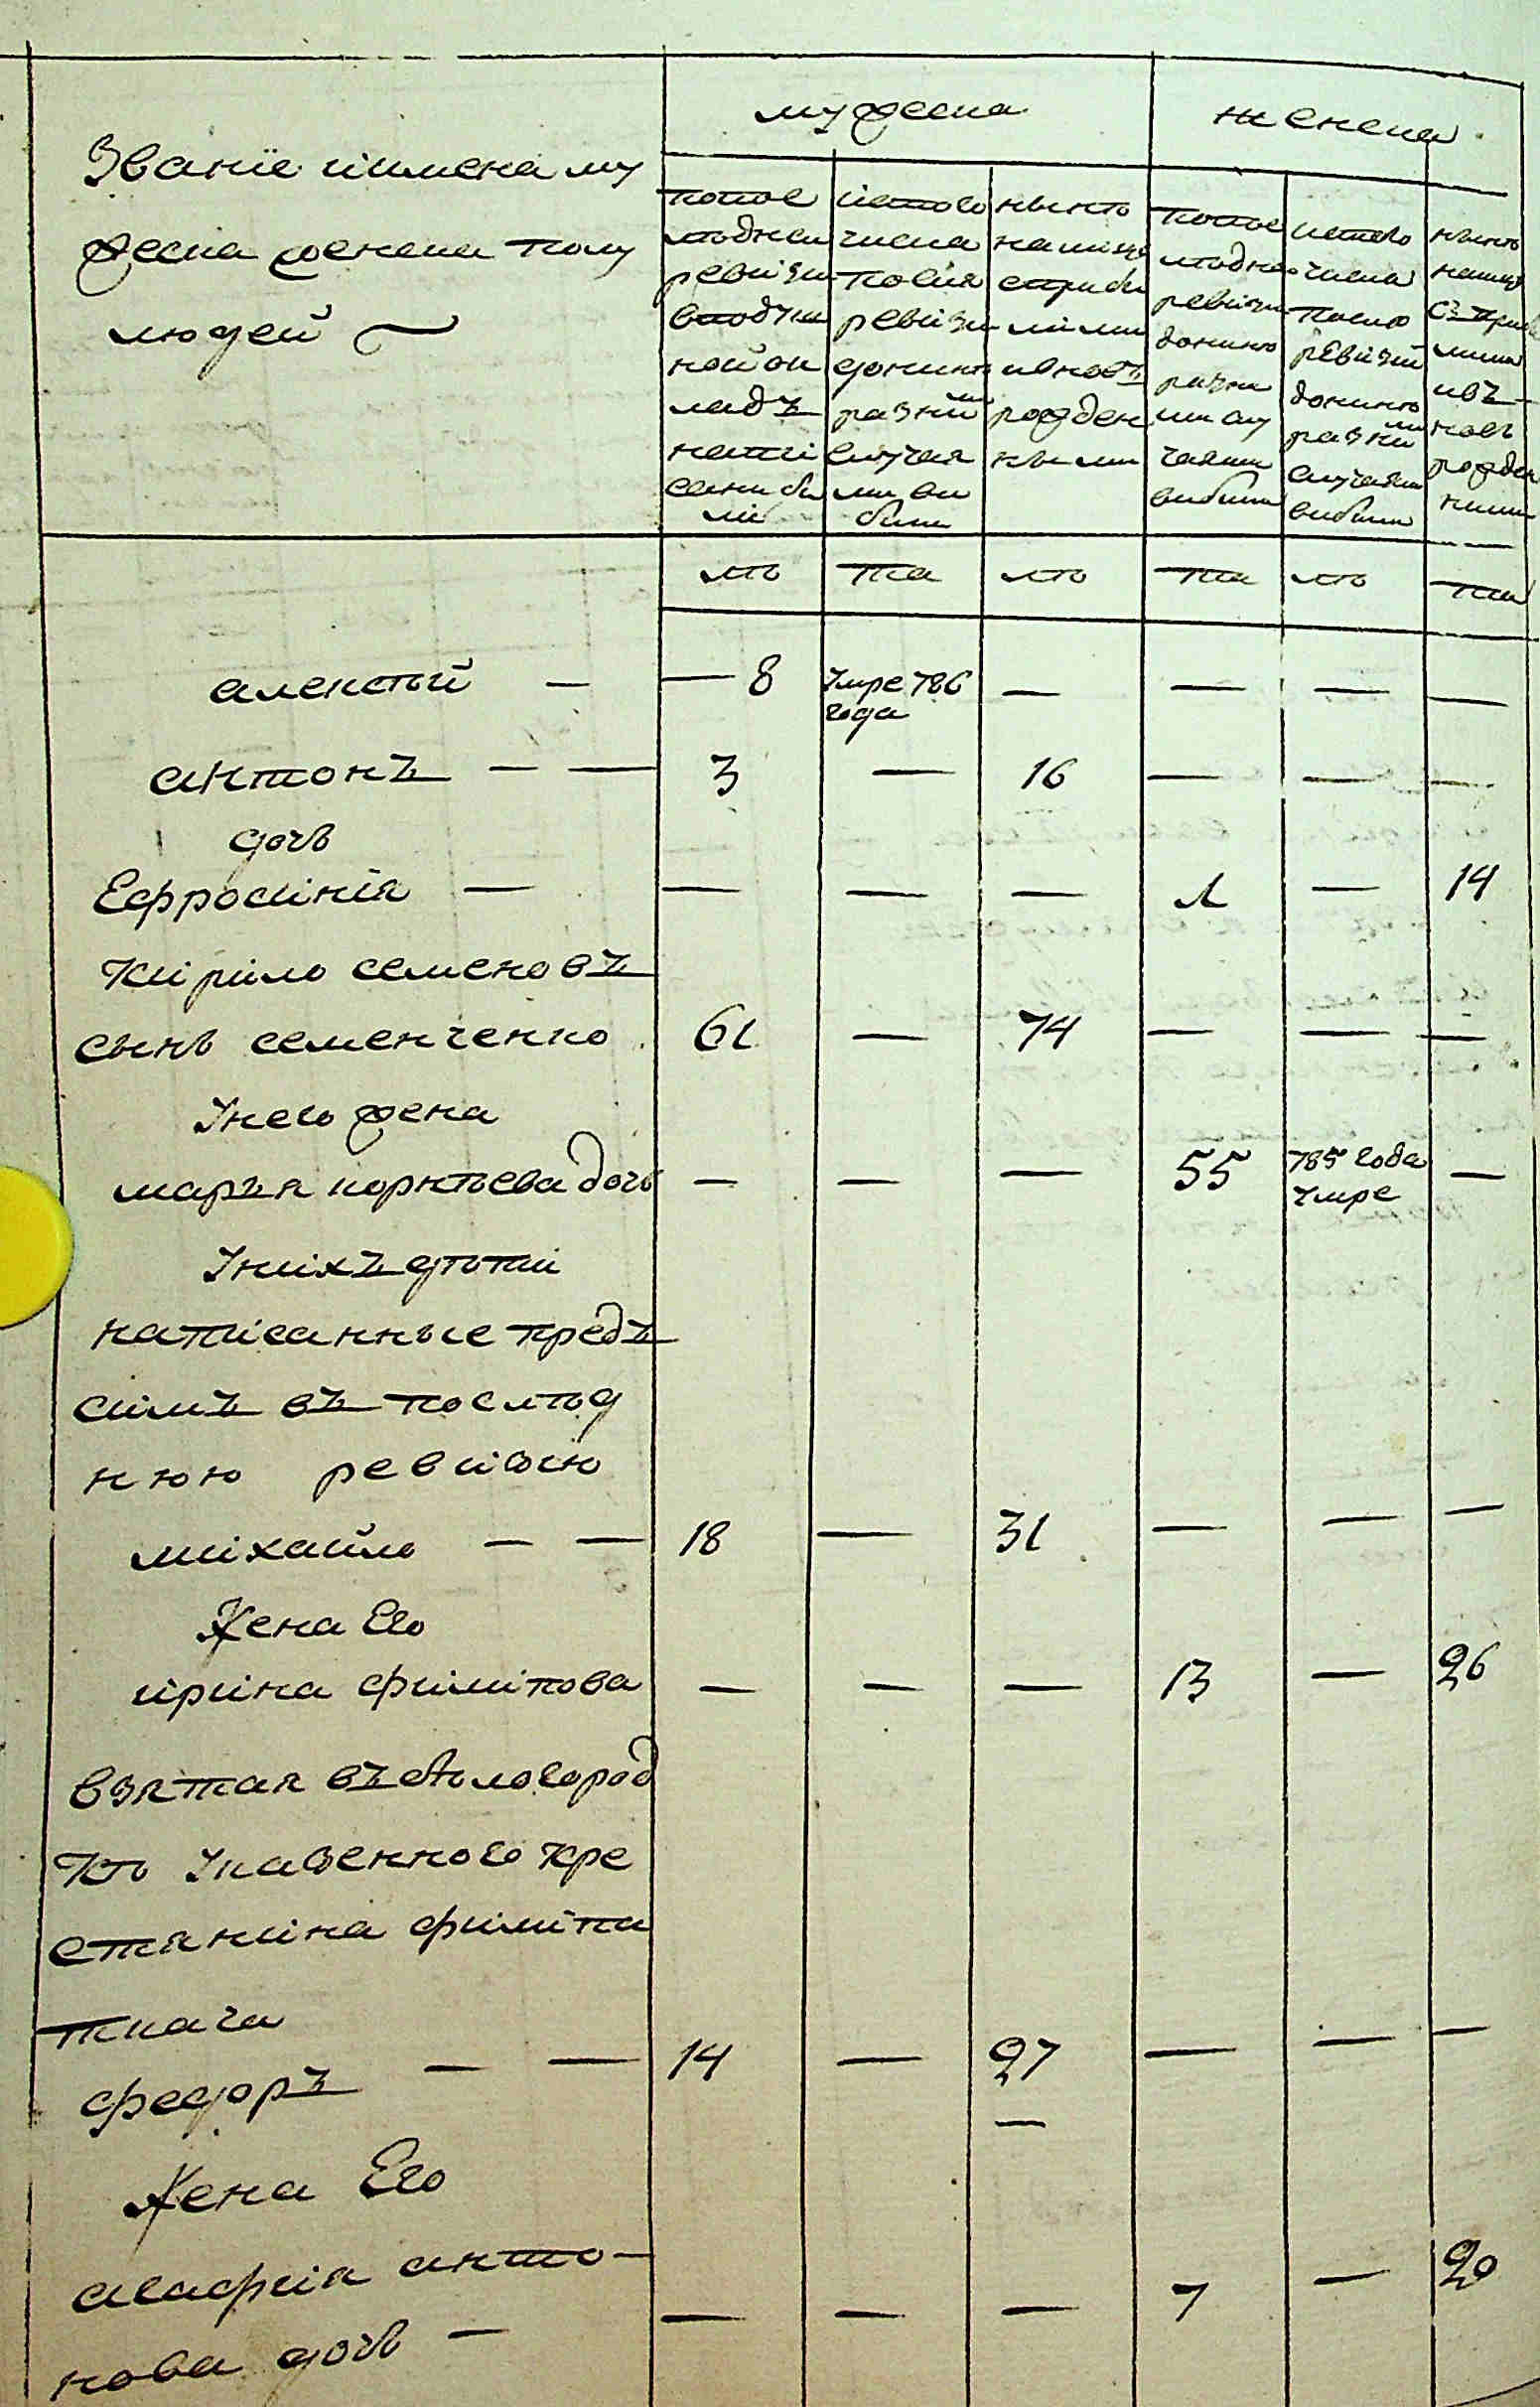 мужеска женска
Званїе иимена му
жеска женска полу
людей
после
дней
ревизи
вподуш
ной ок
ладъ
напи
саны бы
ли
истого
числа
после
ревизи
донинѣ
разний
случая
ми вы
были
нынѣ
налицо
сприбы
лими
ивновъ
рожден
ными
после
дней
ревизи
донинѣ
разни
ми слу
чаями
выбыли
истого
числа
после
ревизий
донинѣ
разний
случаями
выбыли
нынѣ
налицо
съ прибы
лими
ивъ
новъ
рожден
ними
лѣ та лѣ та лѣ та
алексѣй — — 8 Умре 786 — — — —
года
антонъ — — 3 — 16 — — —
дочь
Ефросинїя — — — — 1 — 14
Кирило семеновъ
сынъ семенченко 61 — 74 — — —
Унего жена
марья корнѣева дочь — — — 55 785 года —
Умре
Унихъ дѣти
написанные предъ
симъ въ послѣд
нюю ревизїю
михайло — — 18 — 31 — — —
Жена Его
ирина филипова — — — 13 — 26
взятая въ бѣлогород
кѣ Указенного кре
стянина филипа
ткача
федоръ — — 14 — 27 — — —
—
Жена Его
агафия анто-
нова дочь — — — — 7 — 20